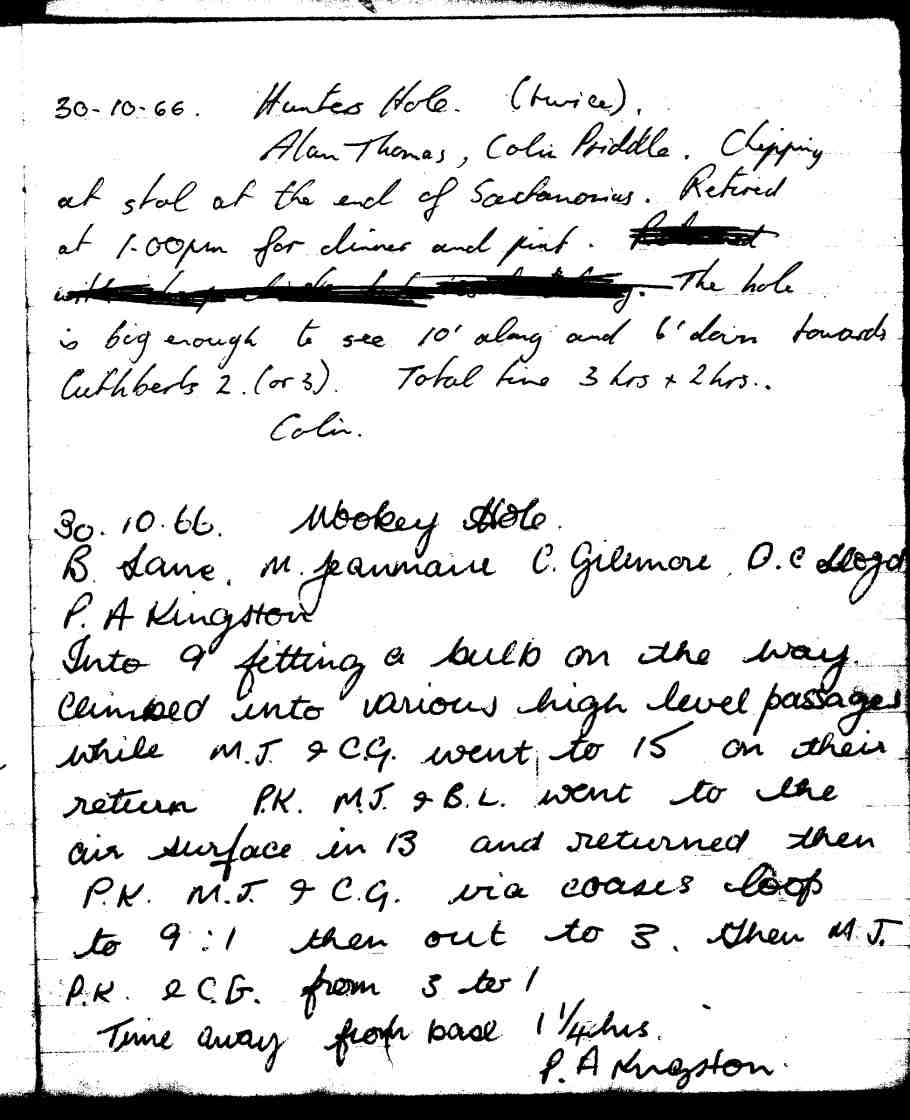 30-10-66. Hunters Hole. (twice).
Alan Thomas, Colin Priddle. Chipping
at stal at the end of Sactanorius. Retired
at 1.00pm for dinner and pint.
The hole
is big enough to see 10' along and 6' down towards
Cuthberts 2. (or 3). Total time 3 hrs + 2 hrs..
Colin.
30.10.66. Wookey Hole.
B. Lane, M. Jeanmaire C. Gilmore, O.C Lloyd
P. A Kingston
Into 9 fitting a bulb on the way.
Climbed into various high level passages
while M.J. & C.G. went to 15 on their
return P.K. M.J. & B.L. went to the
air surface in 13 and returned then
P.K. M.J. & C.G. via coases loop
to 9:1 then out to 3. then M.J.
P.K. & C.G. from 3 to 1
Time away from base 1 1/4 hrs.
P. A Kingston.